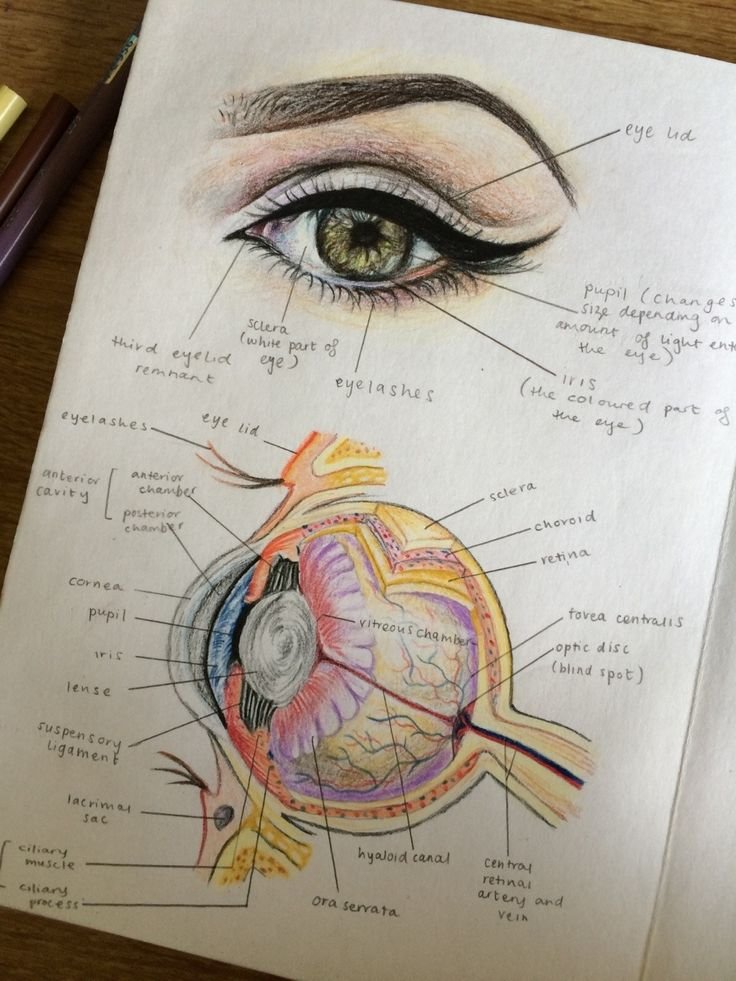 eye lid
pupil (changes
size depending on
amount of light ent
the eye)
sclera
(white part of
eye)
third eyelid
remnant
eyelashes
iris
(the coloured part of
the eye)
eyelashes
eye lid
anterior
cavity
anterior
chamber
posterior
chamber
sclera
choroid
retina
cornea
pupil
iris
lense
suspensory
ligament
vitreous chamber
fovea centralis
optic disc
(blind spot)
lacrimal
sac
ciliary
muscle
ciliary
process
ora serrata
hyaloid canal
central
retinal
artery and
vein